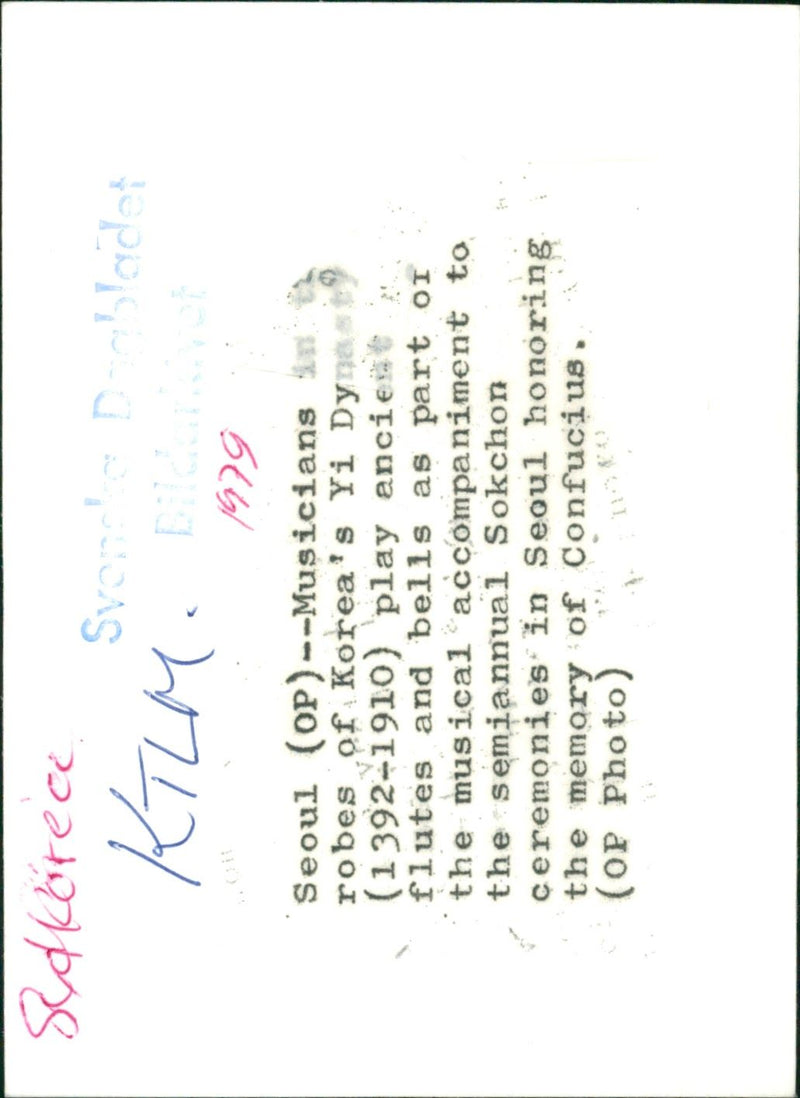 Svenska Dagbladet
Bildarkivet
Sydkorea
KTLM.
1979
Seoul (OP)--Musicians in the
robes of Korea's Yi Dynasty
(1392-1910) play ancient
flutes and bells as part of
the musical accompaniment to
the semiannual Sokchon
ceremonies in Seoul honoring
the memory of Confucius.
(OP Photo)